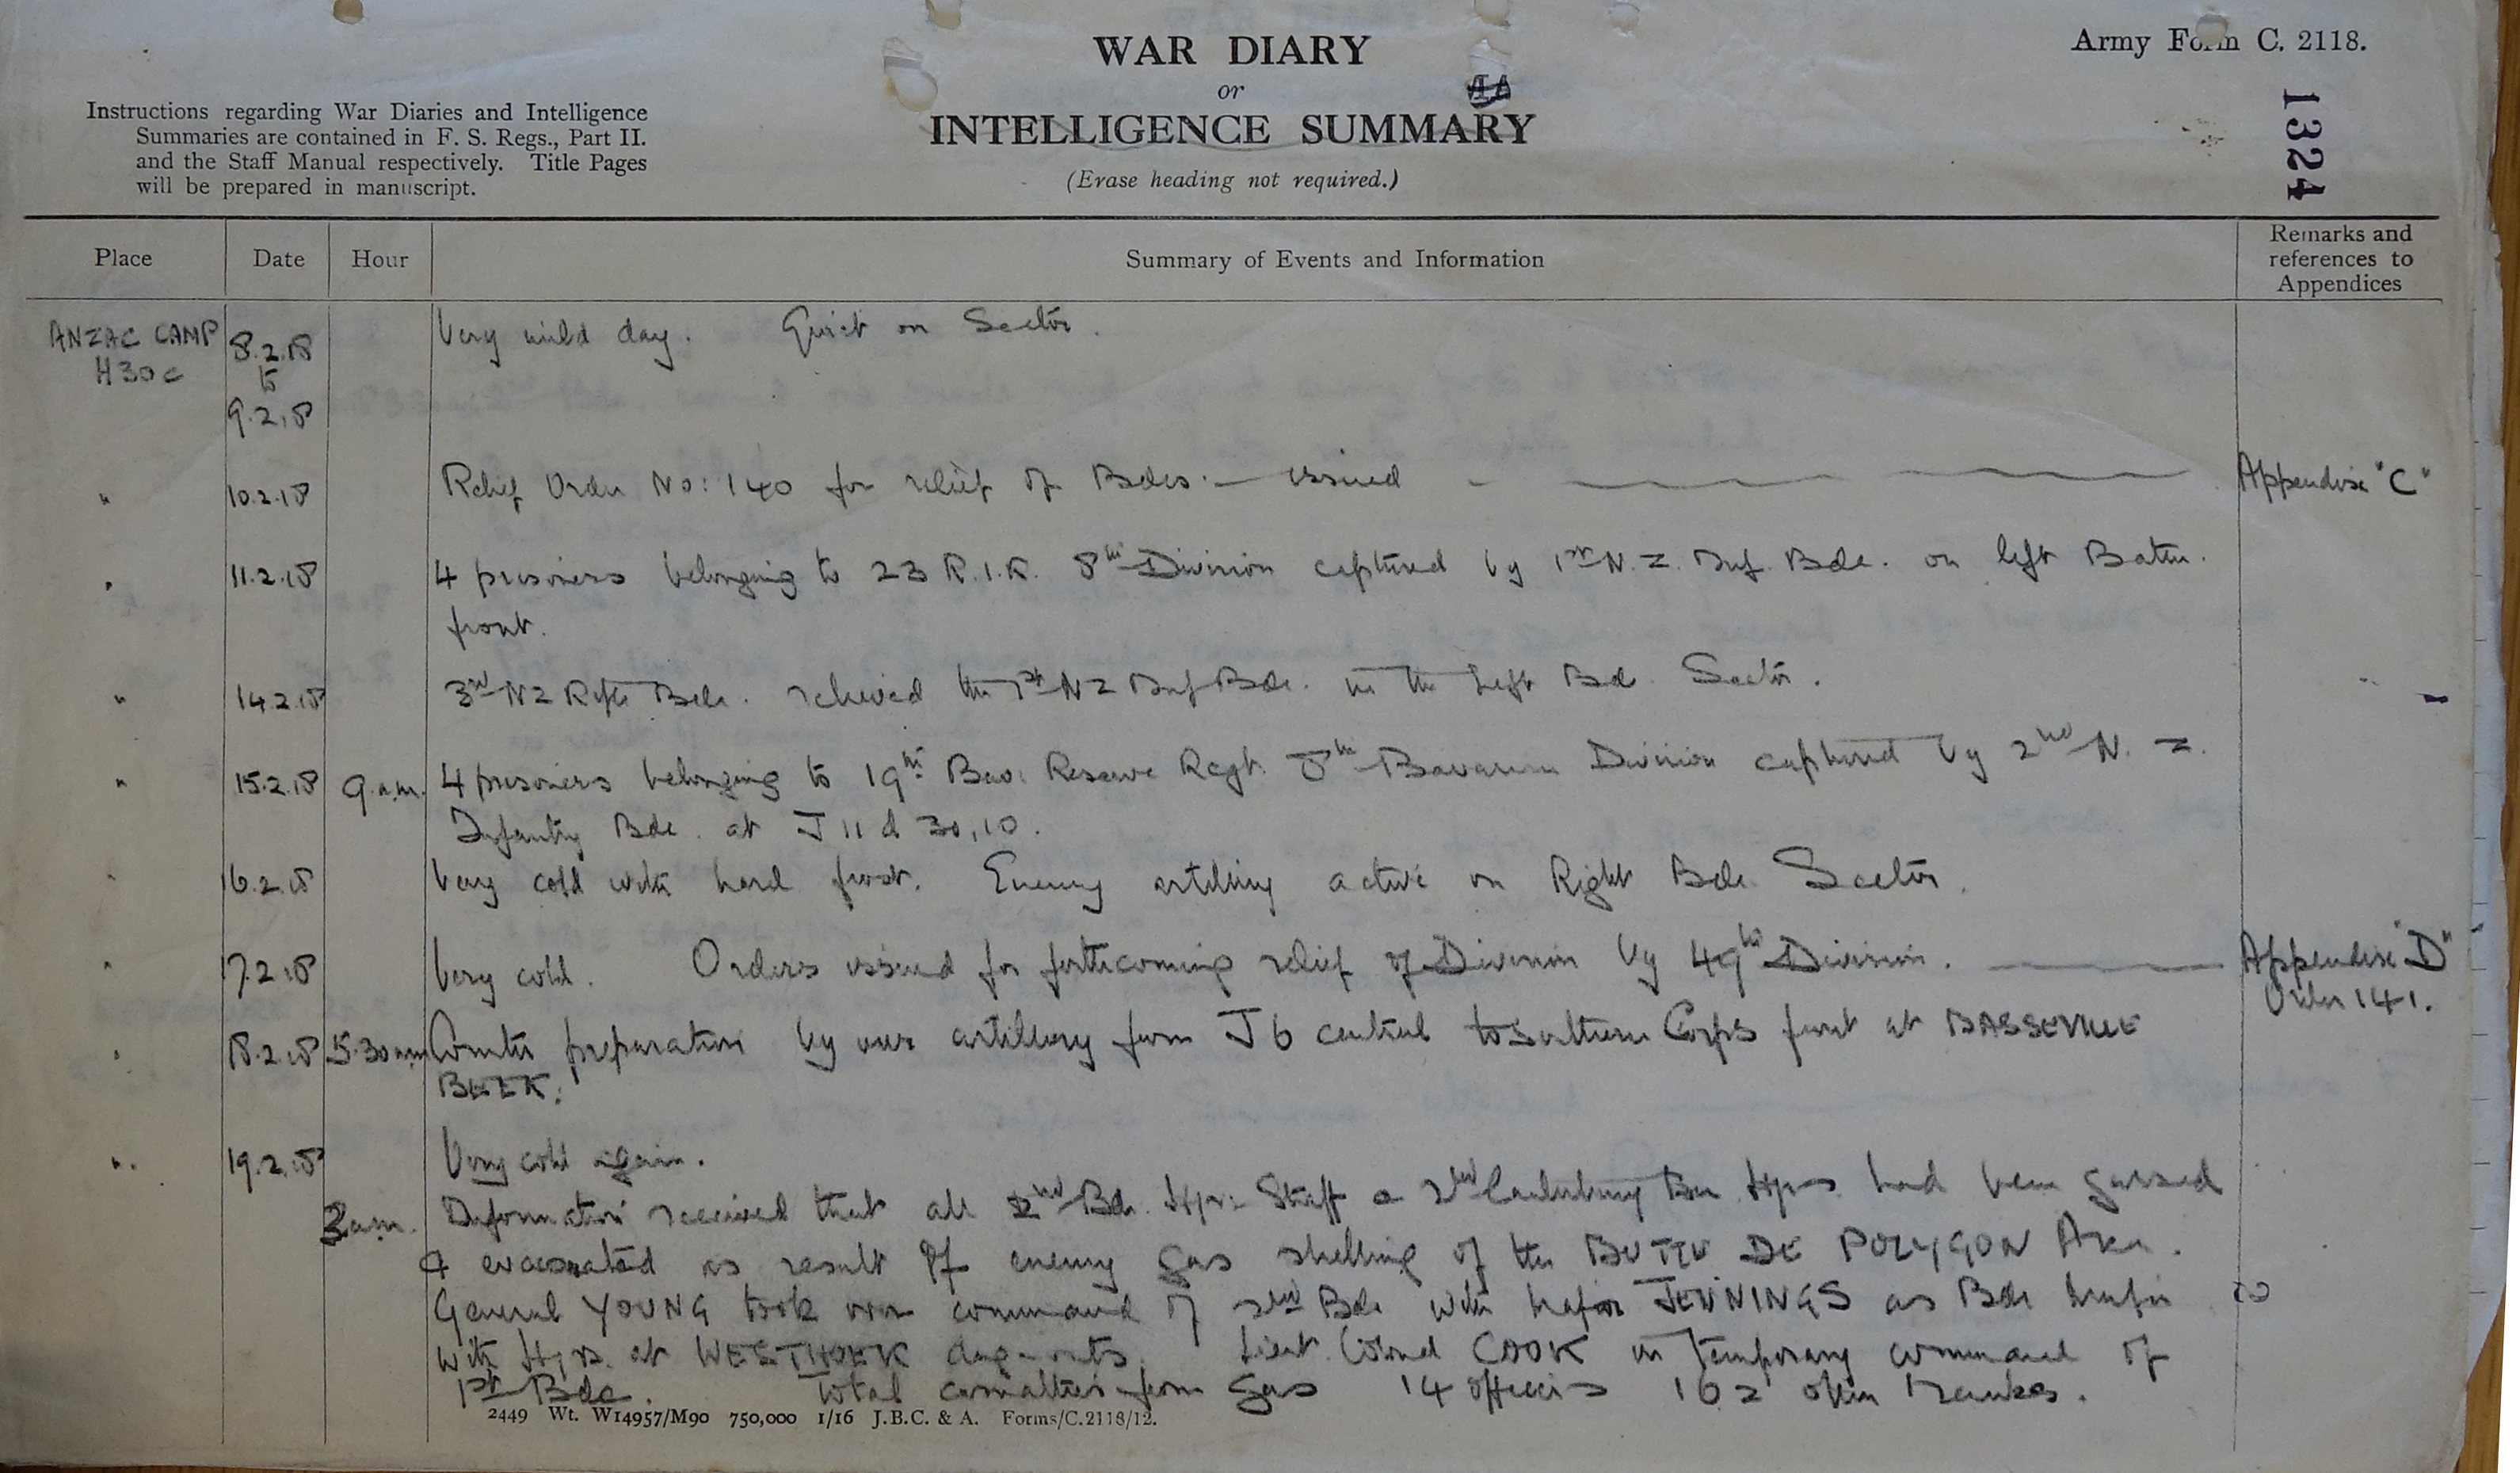 WAR DIARY
Army Form C. 2118.
or
INTELLIGENCE SUMMARY
(Erase heading not required.)
1324
Instructions regarding War Diaries and Intelligence
Summaries are contained in F. S. Regs., Part II.
and the Staff Manual respectively. Title Pages
will be prepared in manuscript.
Place Date Hour Summary of Events and Information Remarks and references to Appendices
ANZAC CAMP 8.2.18 Very mild day. Quiet on Sector.
H30c to
9.2.18
" 10.2.18 Relief Order No: 140 for relief of Bdes. — issued - Appendix "C"
" 11.2.18 4 prisoners belonging to 23 R.I.R. 8th Division captured by 1st N.Z. Inf. Bde. on left Battn.
front.
" 14.2.18 3rd NZ Rifle Bde. relieved the 1st NZ Inf Bde. in the Left Bd. Sector.
" 15.2.18 9 a.m. 4 prisoners belonging to 19th Bav: Reserve Regt. 8th Bavarian Division captured by 2nd N. Z.
Infantry Bde. at J 11 d 30,10.
" 16.2.18 Very cold with hard frost. Enemy artillery active on Right Bde Sector.
" 17.2.18 Very cold. Orders issued for forthcoming relief of Division by 49th Division. Appendix "D"
Order 141.
" 18.2.18 5.30am Counter preparation by our artillery from J 6 central to Southern Corps front at BASSEVILLE
BEEK.
" 19.2.18 Very cold again.
3am. Information received that all 2nd Bde. Hqrs. Staff & 2nd Canterbury Bn Hqrs had been gassed
& evacuated as result of enemy gas shelling of the BUTTE DE POLYGON Area.
General YOUNG took over command of 2nd Bde with Major JENNINGS as Bde Major
with Hqrs. at WESTHOEK dug-outs. Lieut. Colonel COOK in Temporary command of
1st Bde. Total casualties from gas 14 officers 162 other ranks.
2449 Wt. W14957/M90 750,000 1/16 J.B.C. & A. Forms/C.2118/12.